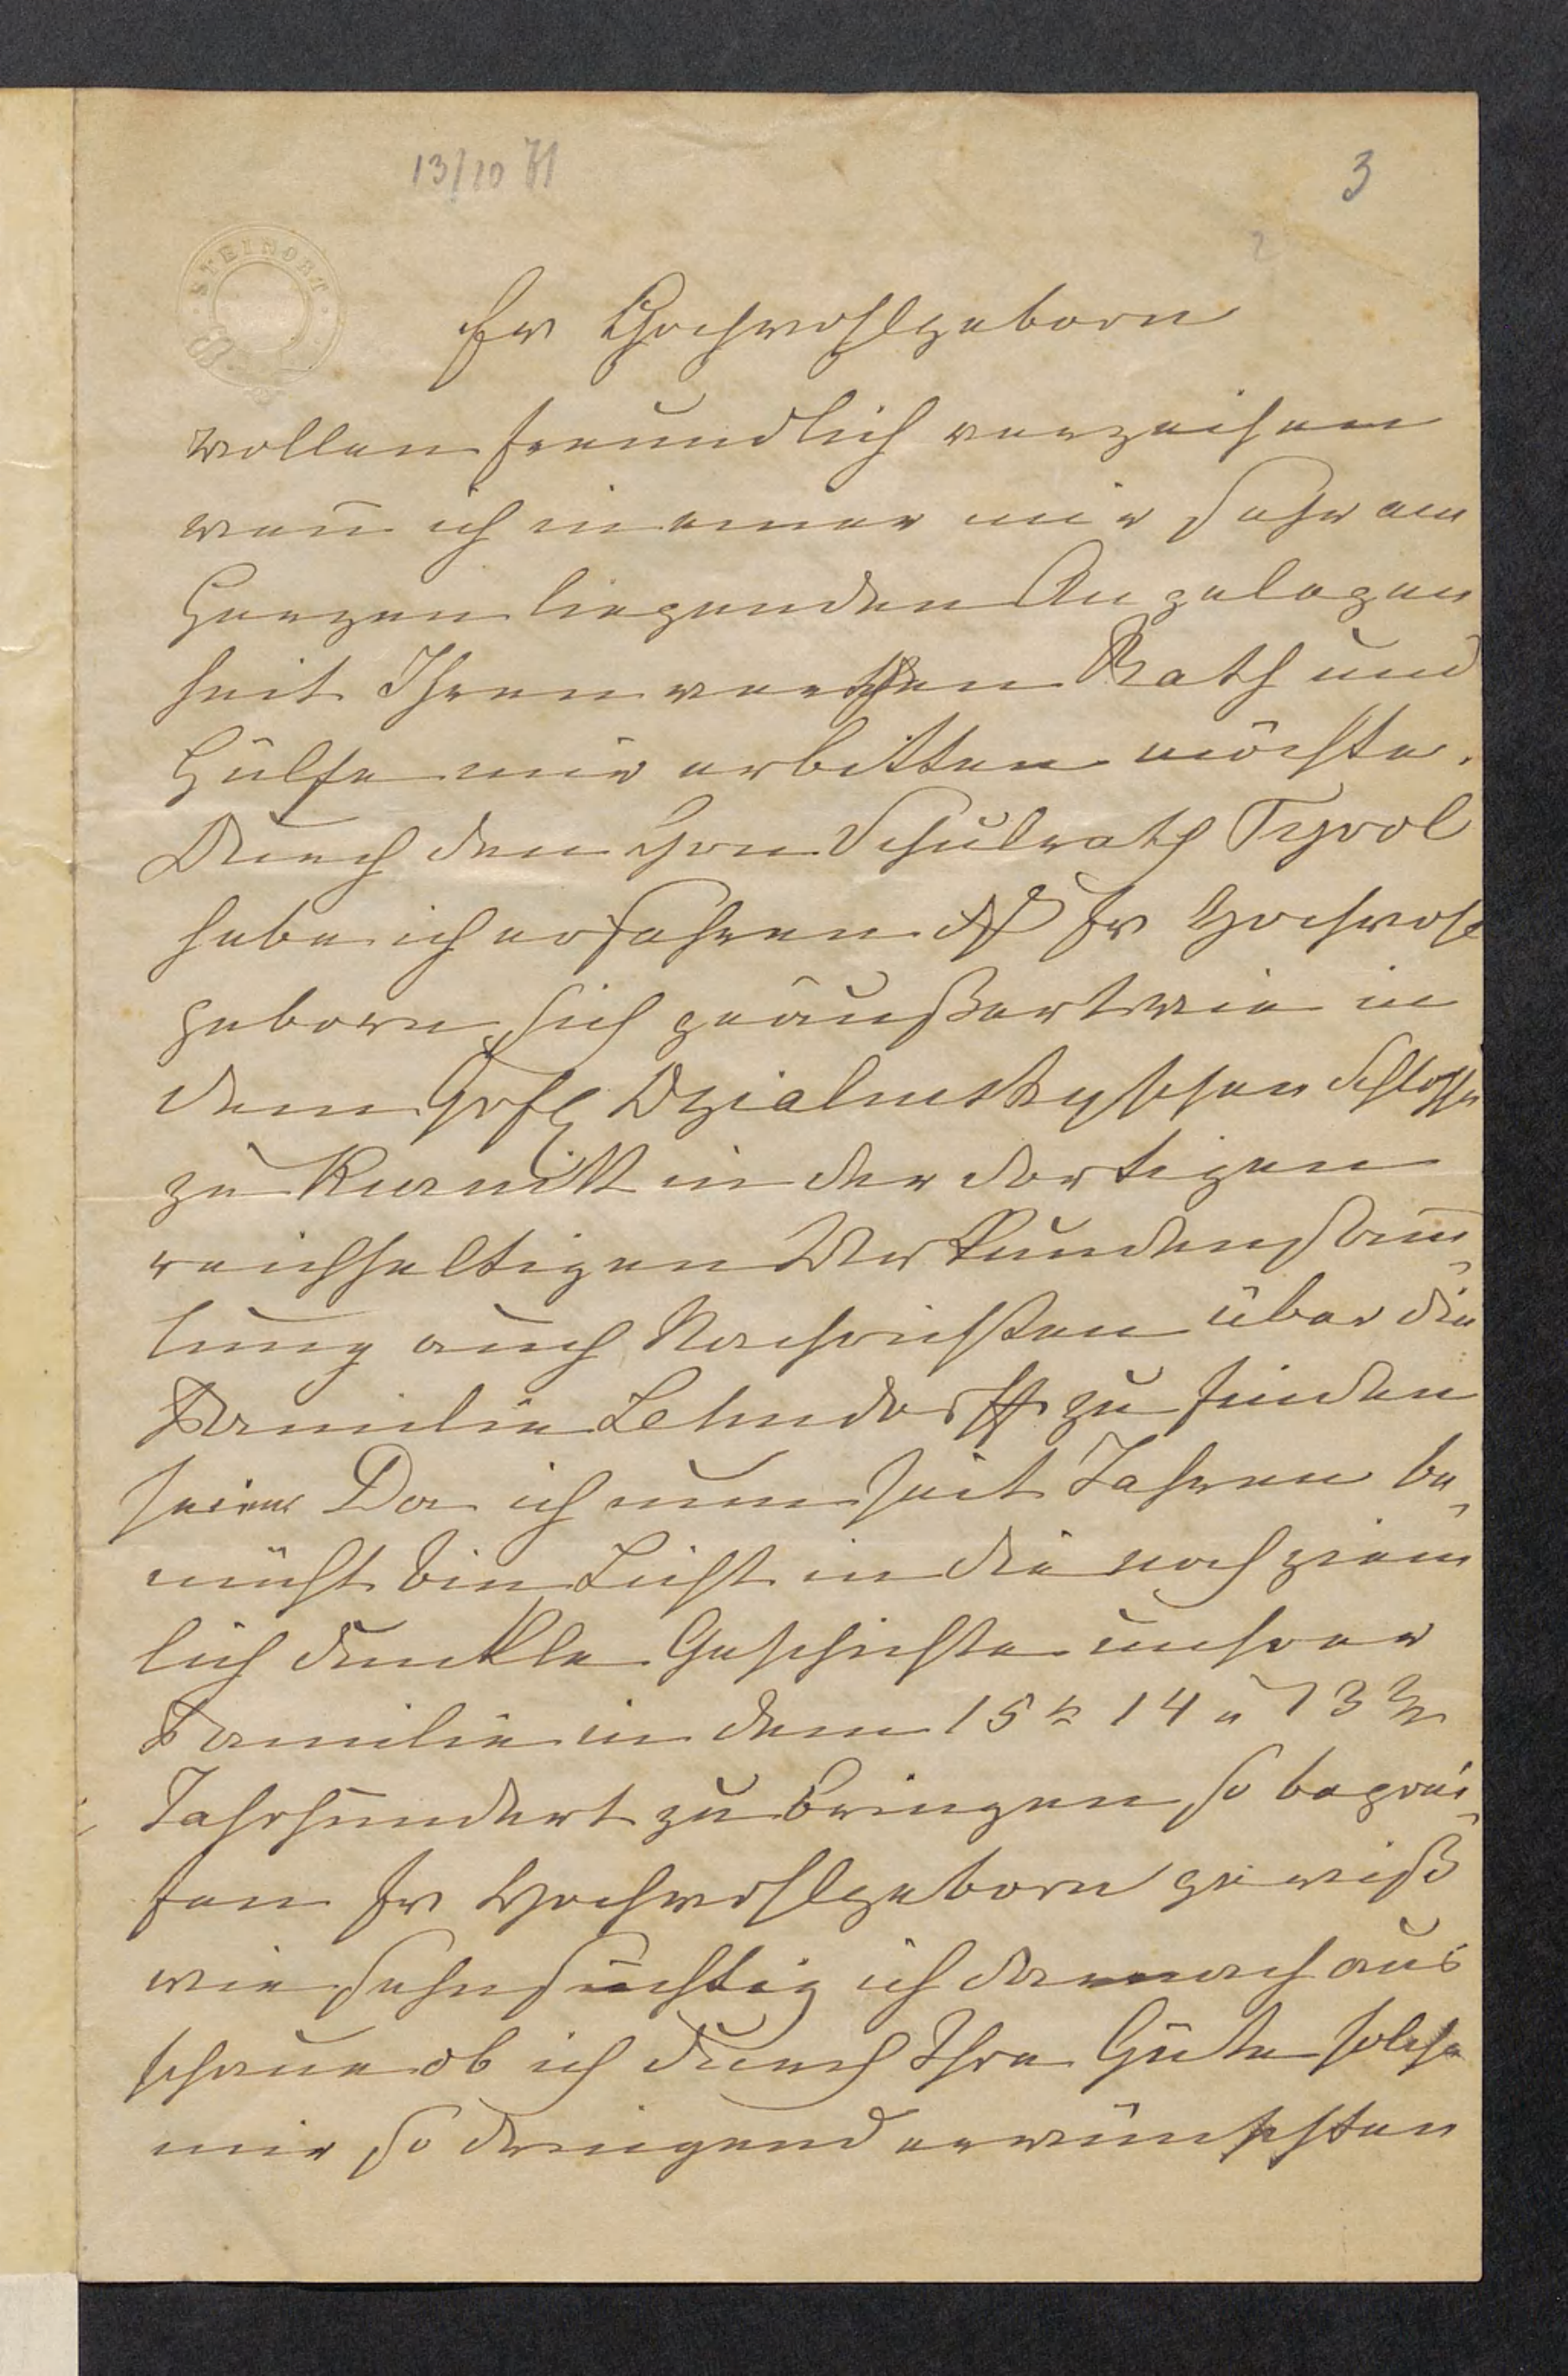 13/10 71
3
STEINORT
Ew Hochwohlgeborn
wollen freundlich verzeihen
wen̄ ich in einer mir sehr am
Herzen liegenden Angelegen
heit Ihren werthen Rath und
Hülfe mir erbitten möchte.
Durch den Hrn Schulrath Tyrol
habe ich erfahren dß Ew Hochwohl
geborn sich geäußert wie in
dem Gräfl Dzialinskyschen Schlosse
zu Kurnik in der dortigen
reichhaltigen Urkundensam̄
lung auch Nachrichten über die
Familie Lehndorff zu finden
seien Da ich nun seit Jahren be
müht bin Licht in die noch ziem
lich dunkle Geschichte unserer
Familie in dem 15tn 14 u 13tn
Jahrhundert zu bringen so begrei
fen Ew Hochwohlgeborn gewiß
wie sehnsüchtig ich darnach aus
schaue ob ich durch Ihre Güte solche
mir so dringend erwünschten